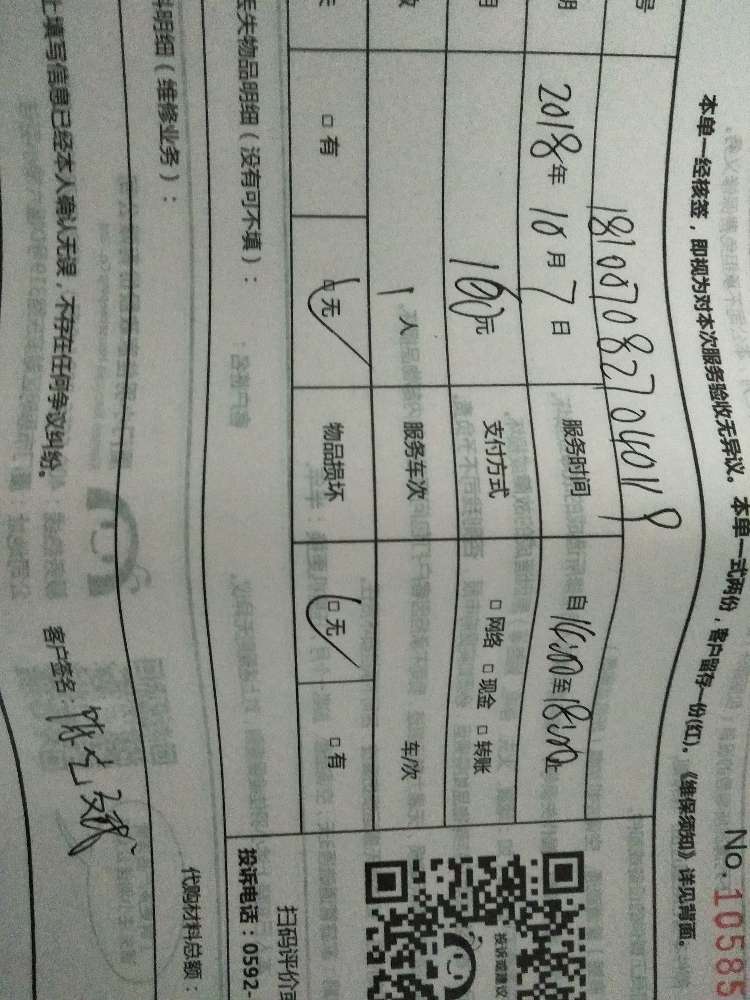 No. 10585
本单一经核签，即视为对本次服务验收无异议。本单一式两份，客户留存一份(红)。《维保须知》详见背面。
号 1810070827040119
2018年10月7日 服务时间 自16:00至18:00止
100元 支付方式 □网络 □现金 □转账
1人 服务车次 车/次
□有 □无 物品损坏 □无 □有
失物品明细（没有可不填）：
明细（维修业务）：
代购材料总额：
填写信息已经本人确认无误，不存在任何争议纠纷。 客户签名：
投诉或建议
扫码评价
投诉电话：0592-